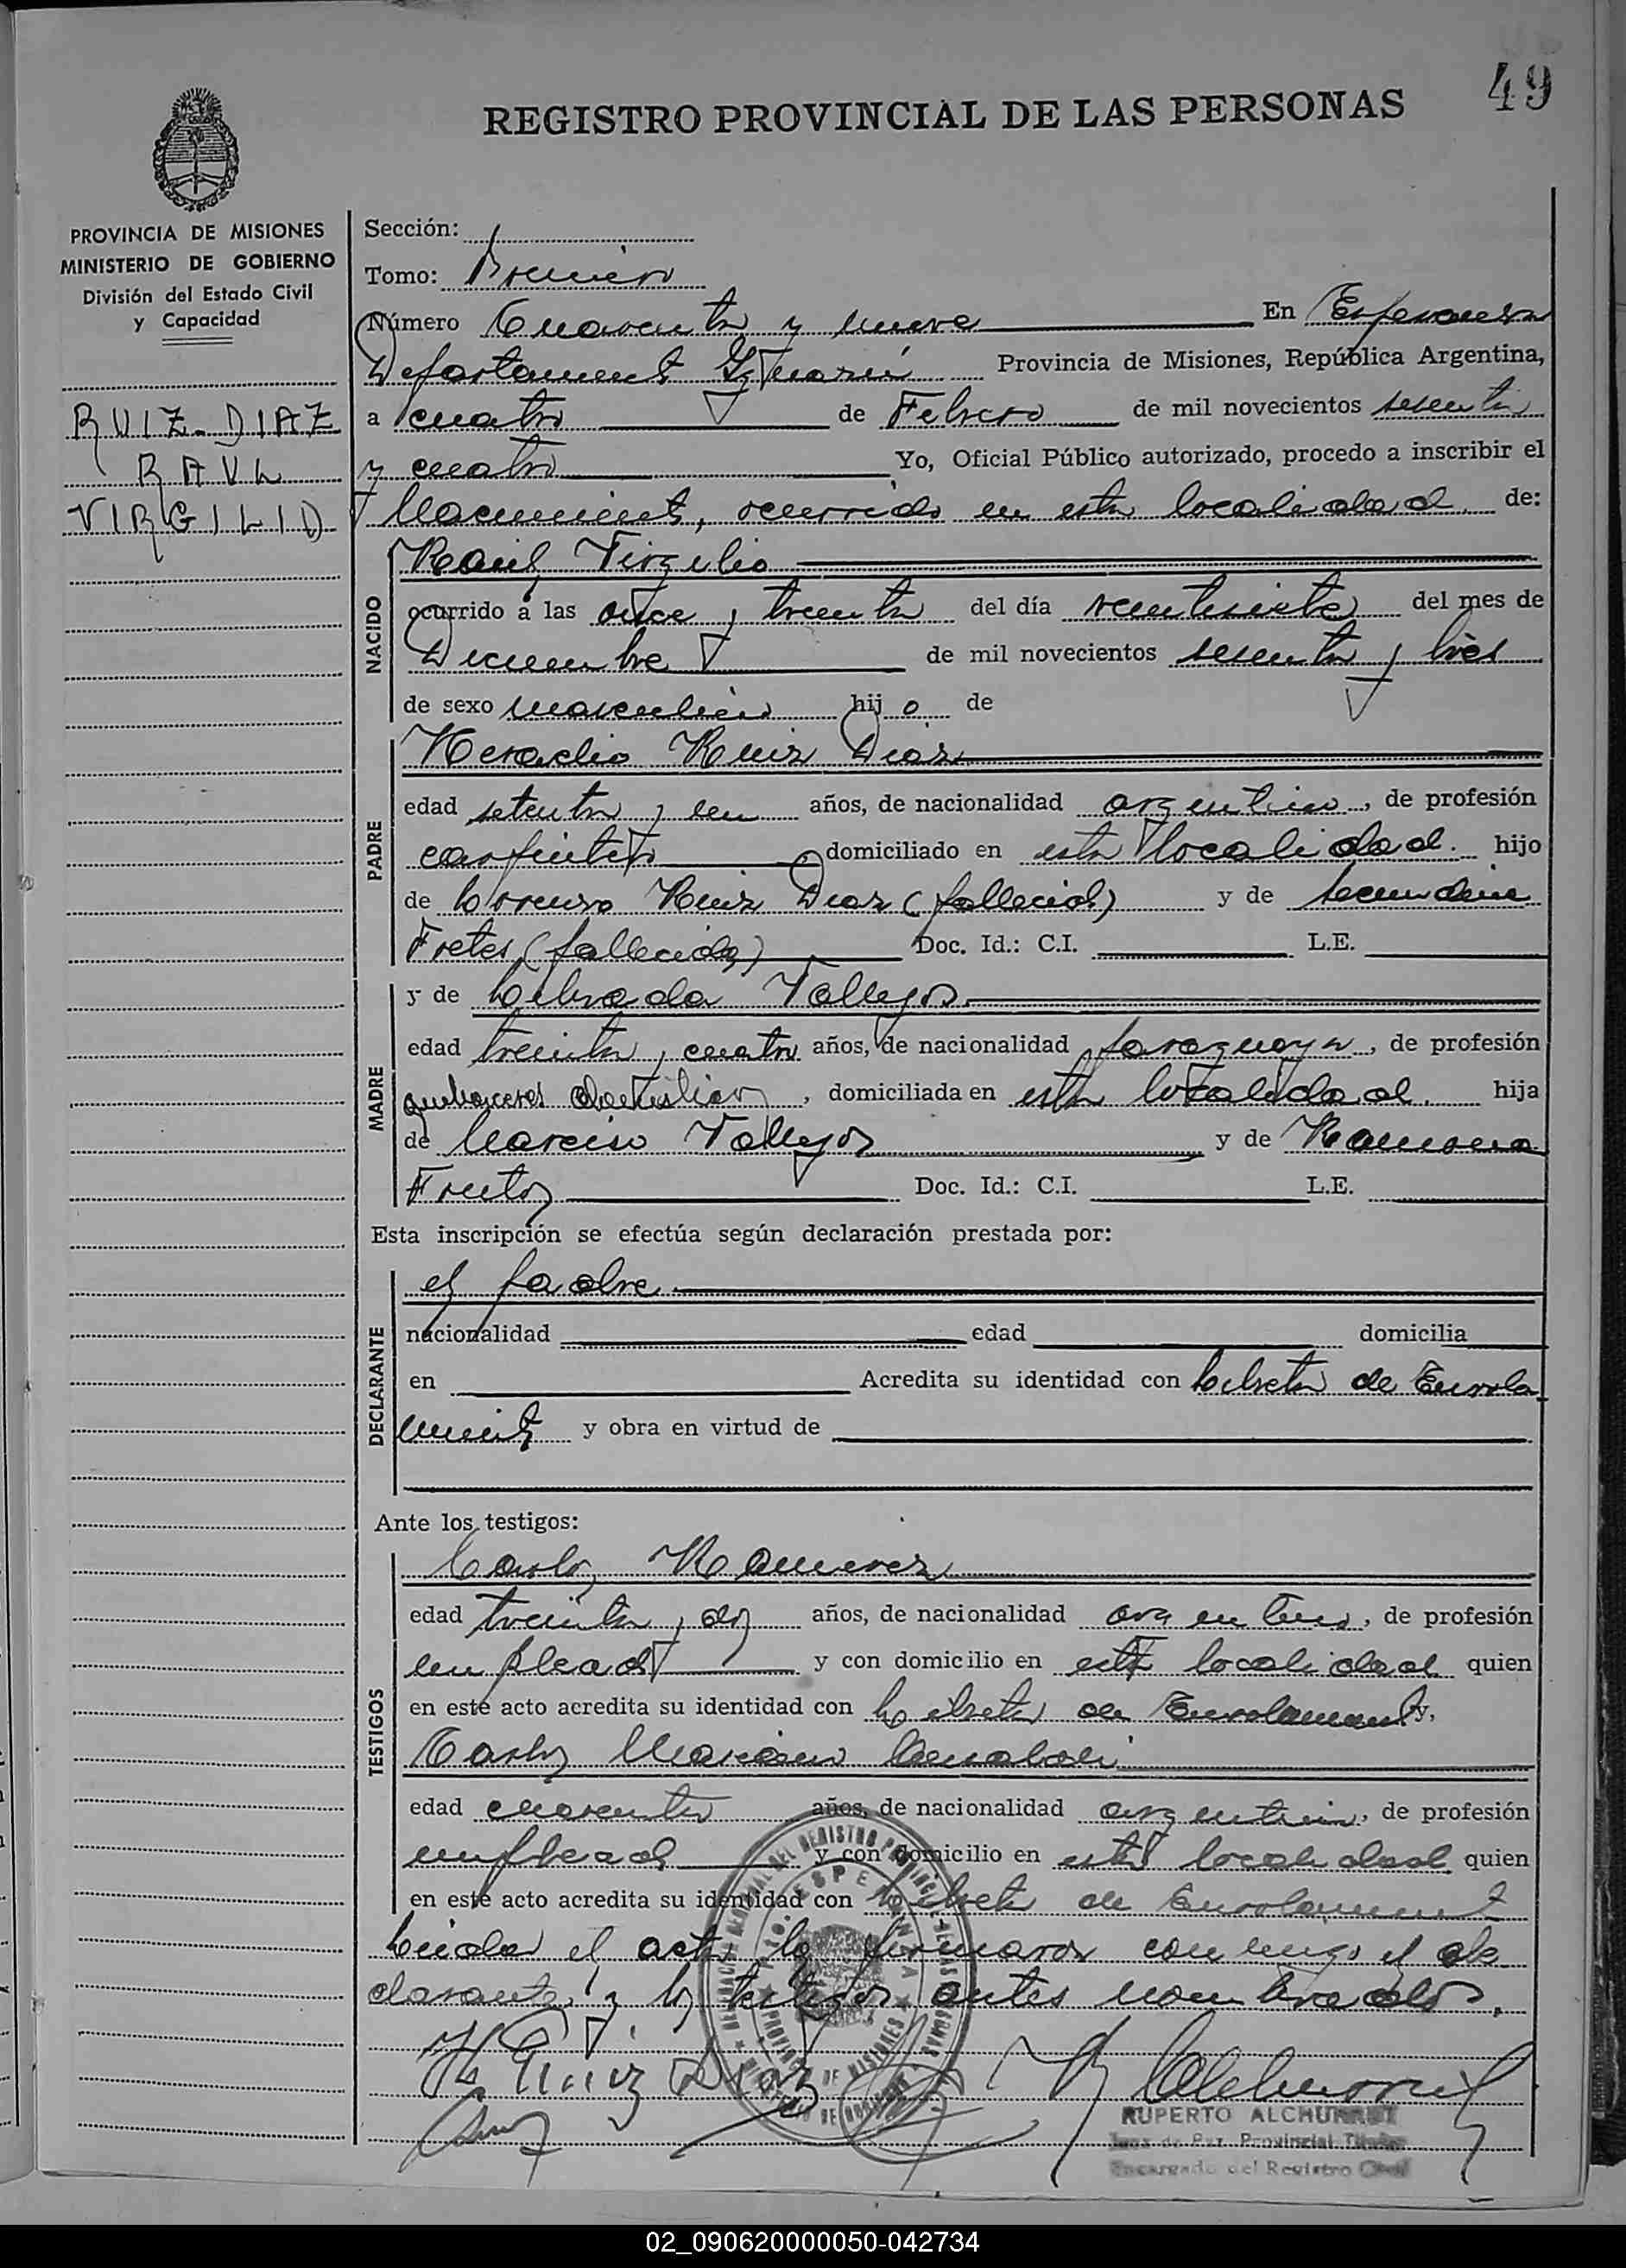 49
REGISTRO PROVINCIAL DE LAS PERSONAS
PROVINCIA DE MISIONES
MINISTERIO DE GOBIERNO
División del Estado Civil
y Capacidad
RUIZ-DIAZ
RAUL
VIRGILIO
Sección:
Tomo: Primero
Número Cuarenta y nueve En Esperanza
Departamento Iguazú Provincia de Misiones, República Argentina,
a cuatro de Febrero de mil novecientos sesenta
y cuatro Yo, Oficial Público autorizado, procedo a inscribir el
Nacimiento, ocurrido en esta localidad de:
NACIDO
Raúl Virgilio
ocurrido a las once y treinta del día veintisiete del mes de
Diciembre de mil novecientos sesenta y tres
de sexo masculino hijo de
PADRE
Heraclio Ruiz Diaz
edad setenta y un años, de nacionalidad argentino, de profesión
carpintero domiciliado en esta localidad. hijo
de Lorenzo Ruiz Diaz (fallecido) y de Secundina
Fretes (fallecida) Doc. Id.: C.I. L.E.
MADRE
y de Librada Vallejos
edad treinta y cuatro años, de nacionalidad paraguaya, de profesión
quehaceres domésticos, domiciliada en esta localidad. hija
de Narciso Vallejos y de Ramona
Frutos Doc. Id.: C.I. L.E.
Esta inscripción se efectúa según declaración prestada por:
DECLARANTE
el padre
nacionalidad edad domicilia
en Acredita su identidad con Libreta de Enrola
miento y obra en virtud de
Ante los testigos:
TESTIGOS
Carlos Ramirez
edad treinta y dos años, de nacionalidad argentino, de profesión
empleado y con domicilio en esta localidad quien
en este acto acredita su identidad con Libreta de Enrolamiento y,
Carlos Mariano
edad cuarenta años, de nacionalidad argentino, de profesión
empleado y con domicilio en esta localidad quien
en este acto acredita su identidad con Libreta de Enrolamiento
Leida el acta la firmaron conmigo el de
clarante y los testigos antes nombrados.
H Ruiz Diaz
RUPERTO ALCHURRUT
Juez de Paz Provincial Titular
Encargado del Registro Civil
02_090620000050-042734